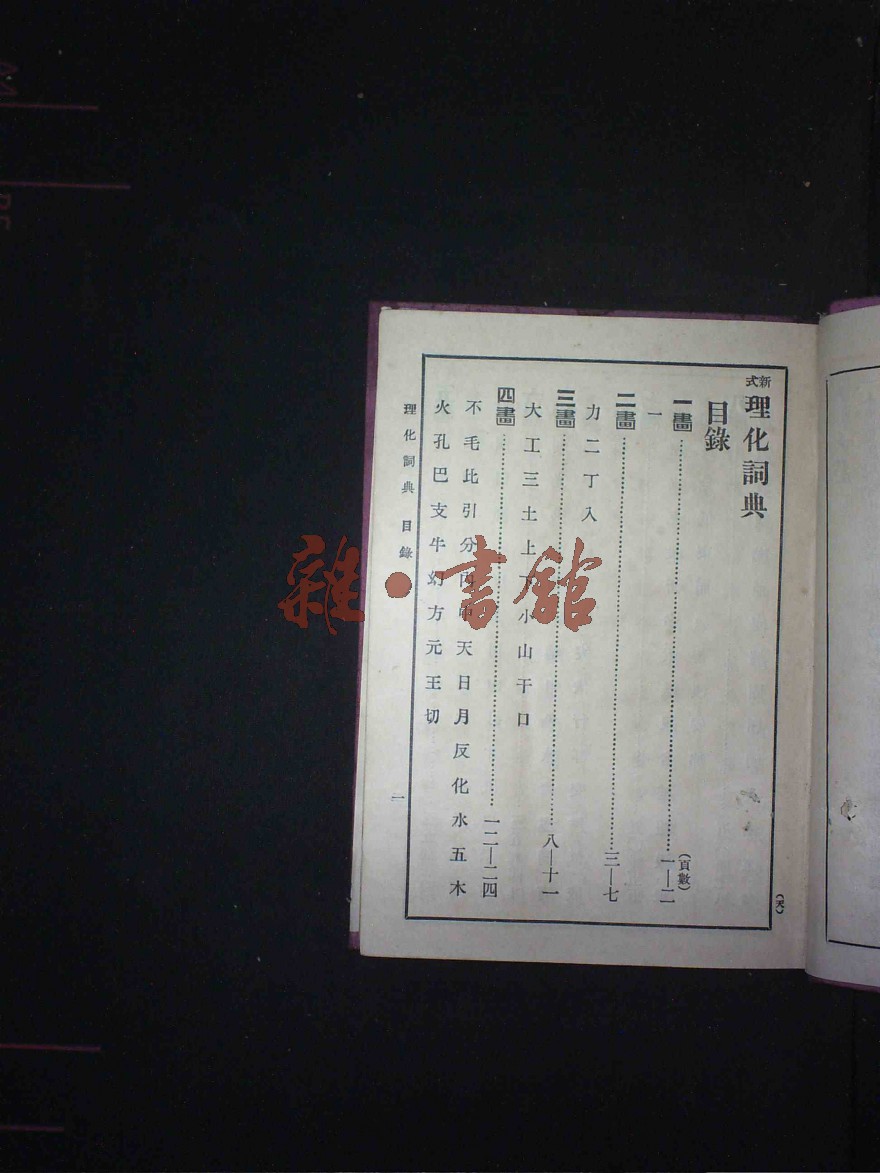 新式理化詞典
目錄
(頁數)
一畫……一—二
一
二畫……三—七
力二丁入
三畫……八—十一
大工三土上下小山干口
四畫……一二—二四
不毛比引分內中天日月反化水五木
火孔巴支牛幻方元王切
理化詞典 目錄
一
(天)
雜·書館